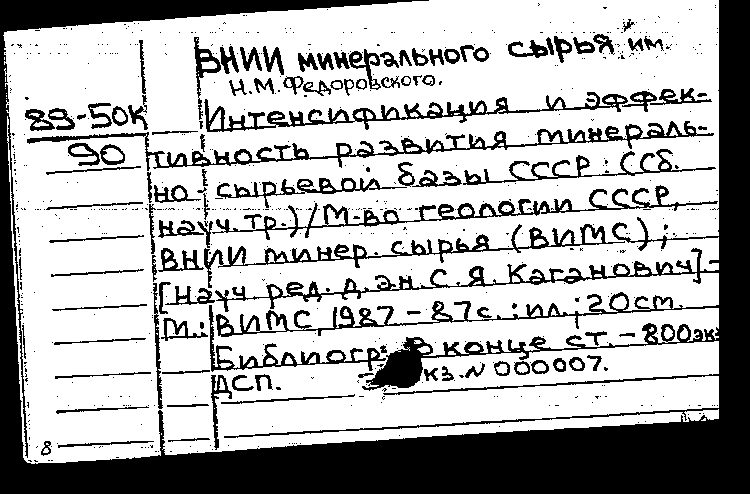 ВНИИ минерального сырья им.
Н.М.Федоровского.
89-50К
90
Интенсификация и эффек-
тивность развития минераль-
но-сырьевой базы СССР: (Сб.
науч. тр.)/М-во геологии СССР,
ВНИИ минер. сырья (ВИМС);
[Науч. ред. д.эн. С.Я. Каганович].-
М.: ВИМС, 1987 - 87с.: ил.; 20см.
Библиогр: В конце ст. - 800эк
ДСП. кз. N 000007.
8